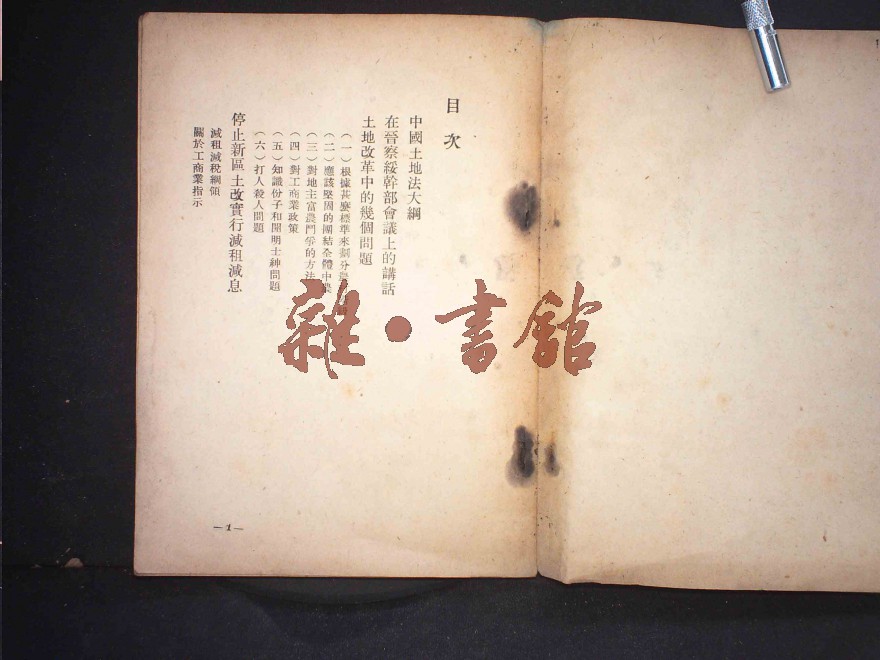 目次
中國土地法大綱
在晉察綏幹部會議上的講話
土地改革中的幾個問題
（一）根據甚麼標準來劃分
（二）應該堅固的團結全體中農
（三）對地主富農鬥爭的方法
（四）對工商業政策
（五）知識份子和開明士紳問題
（六）打人殺人問題
停止新區土改實行減租減息
減租減稅綱領
關於工商業指示
—1—
雜•書館